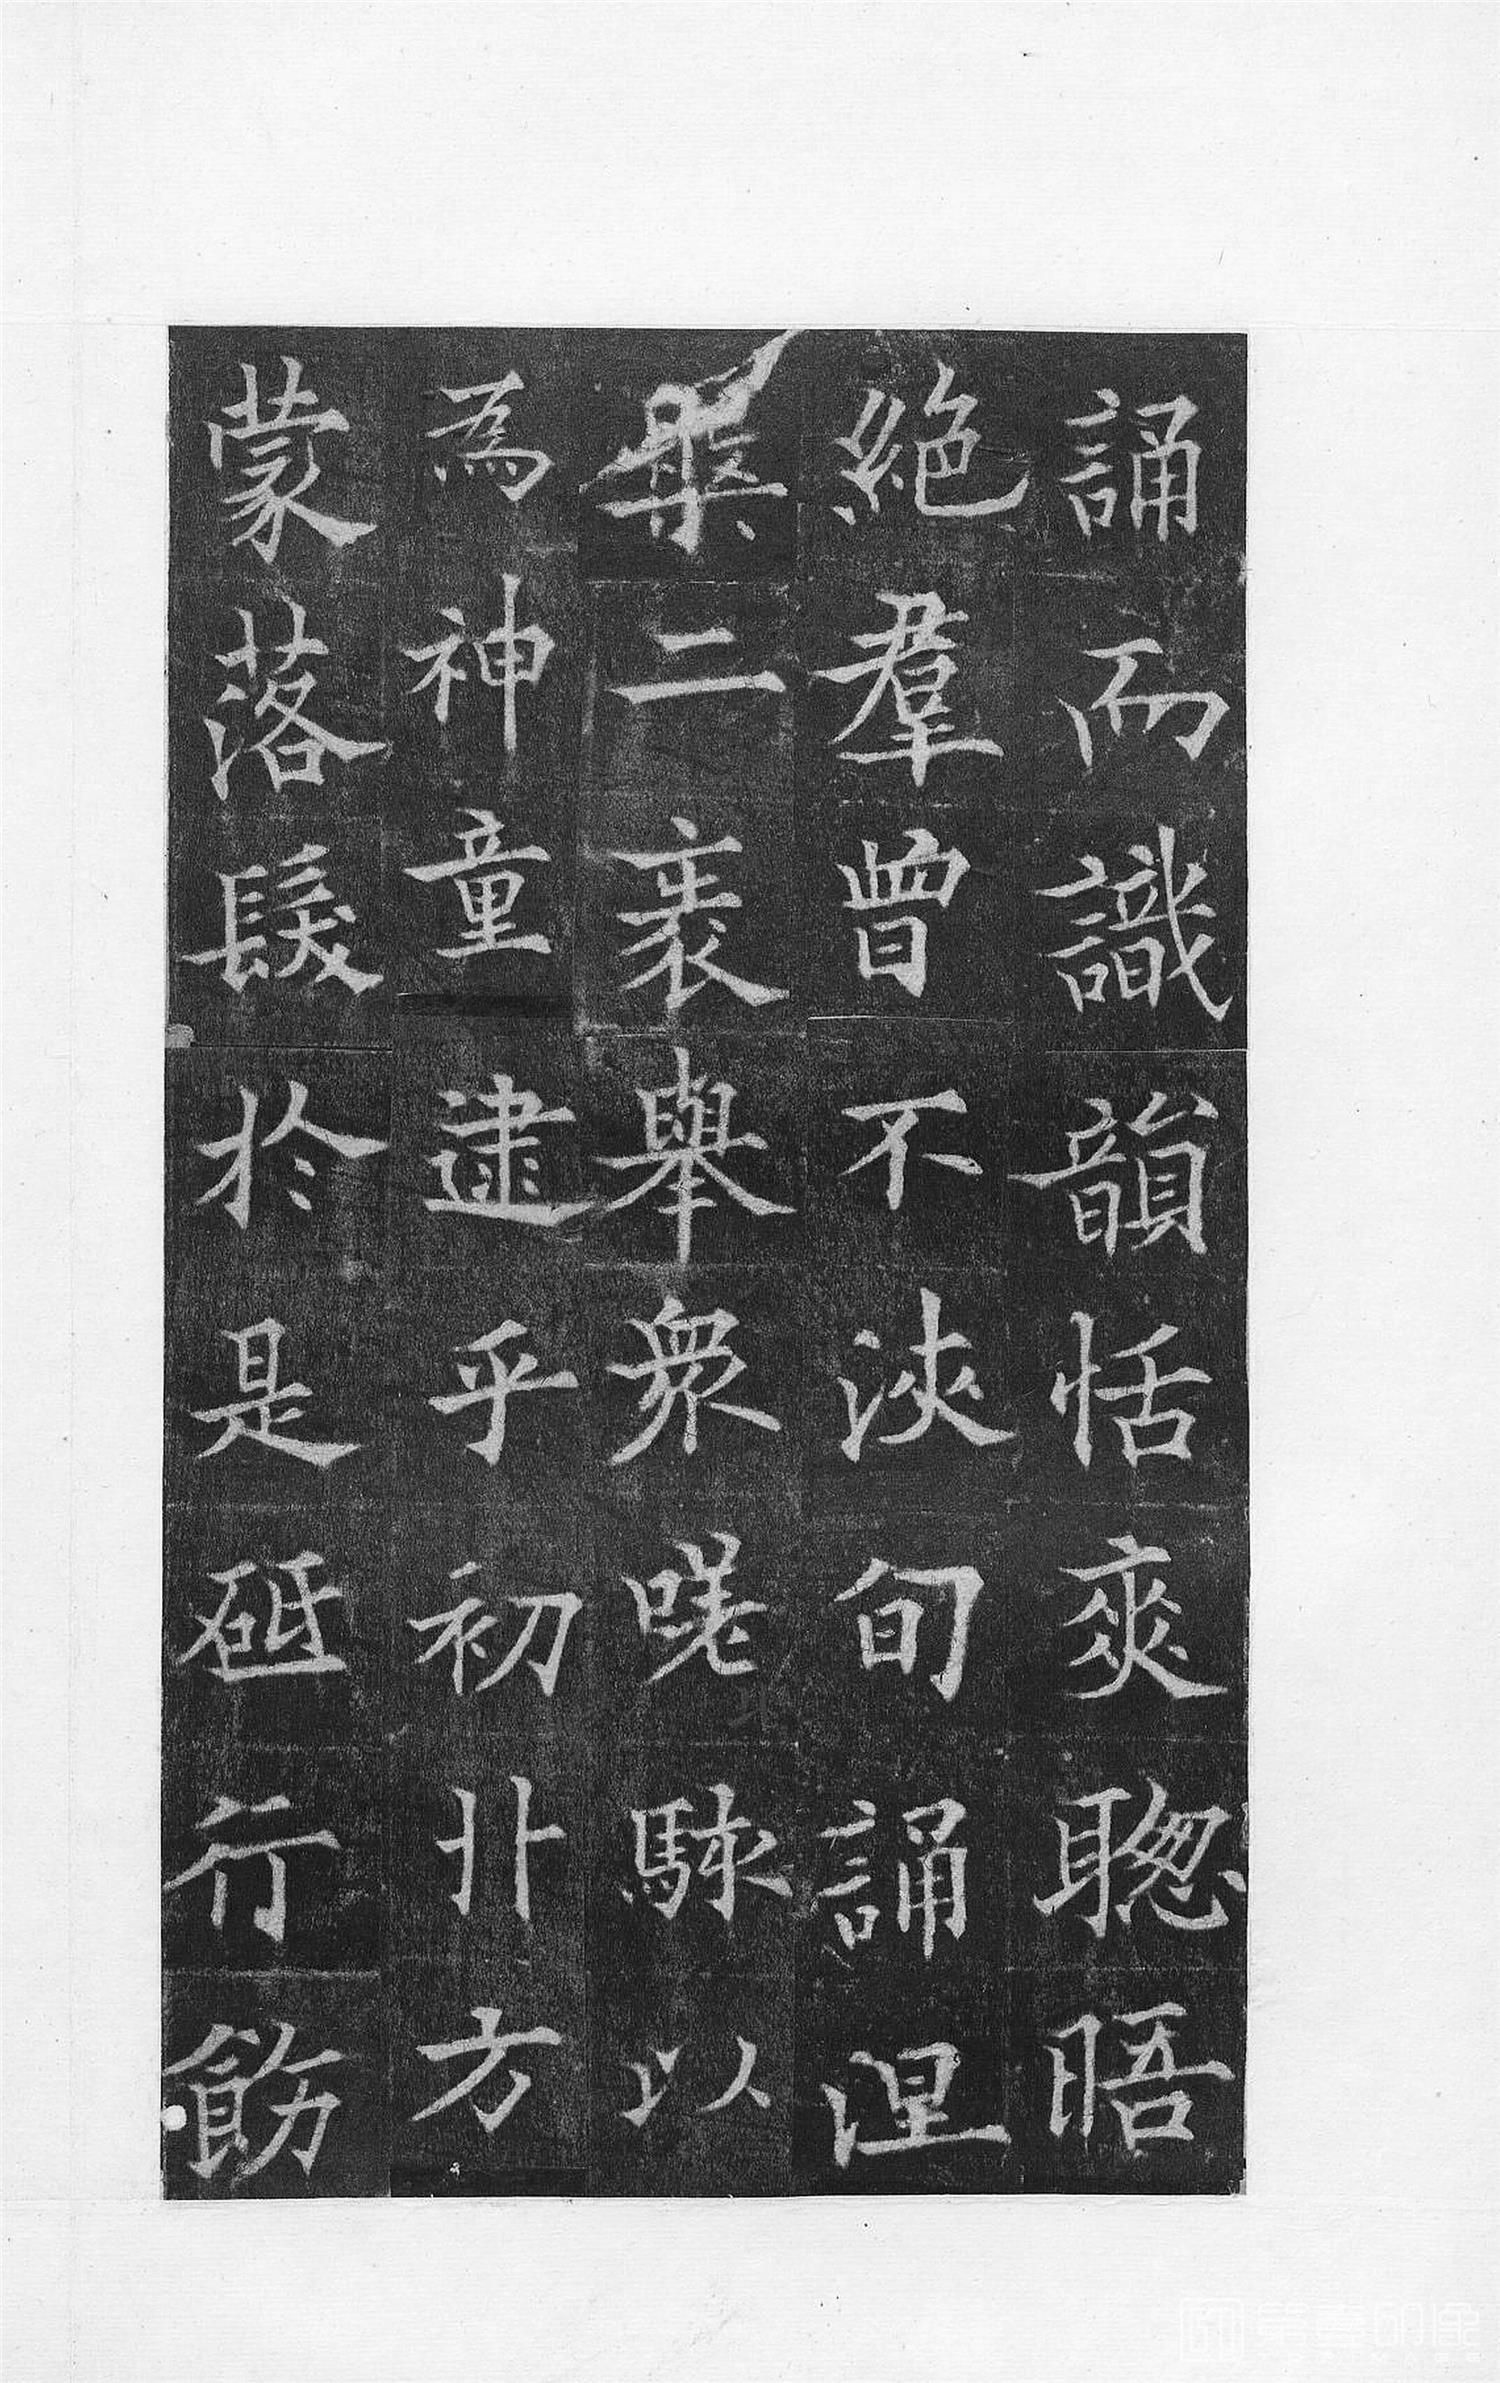 誦而識韻恬爽聰晤
絶羣曾不浹旬誦涅
槃二袠舉衆嗟駭以
為神童逮乎初廾方
蒙落髮於是砥行飭